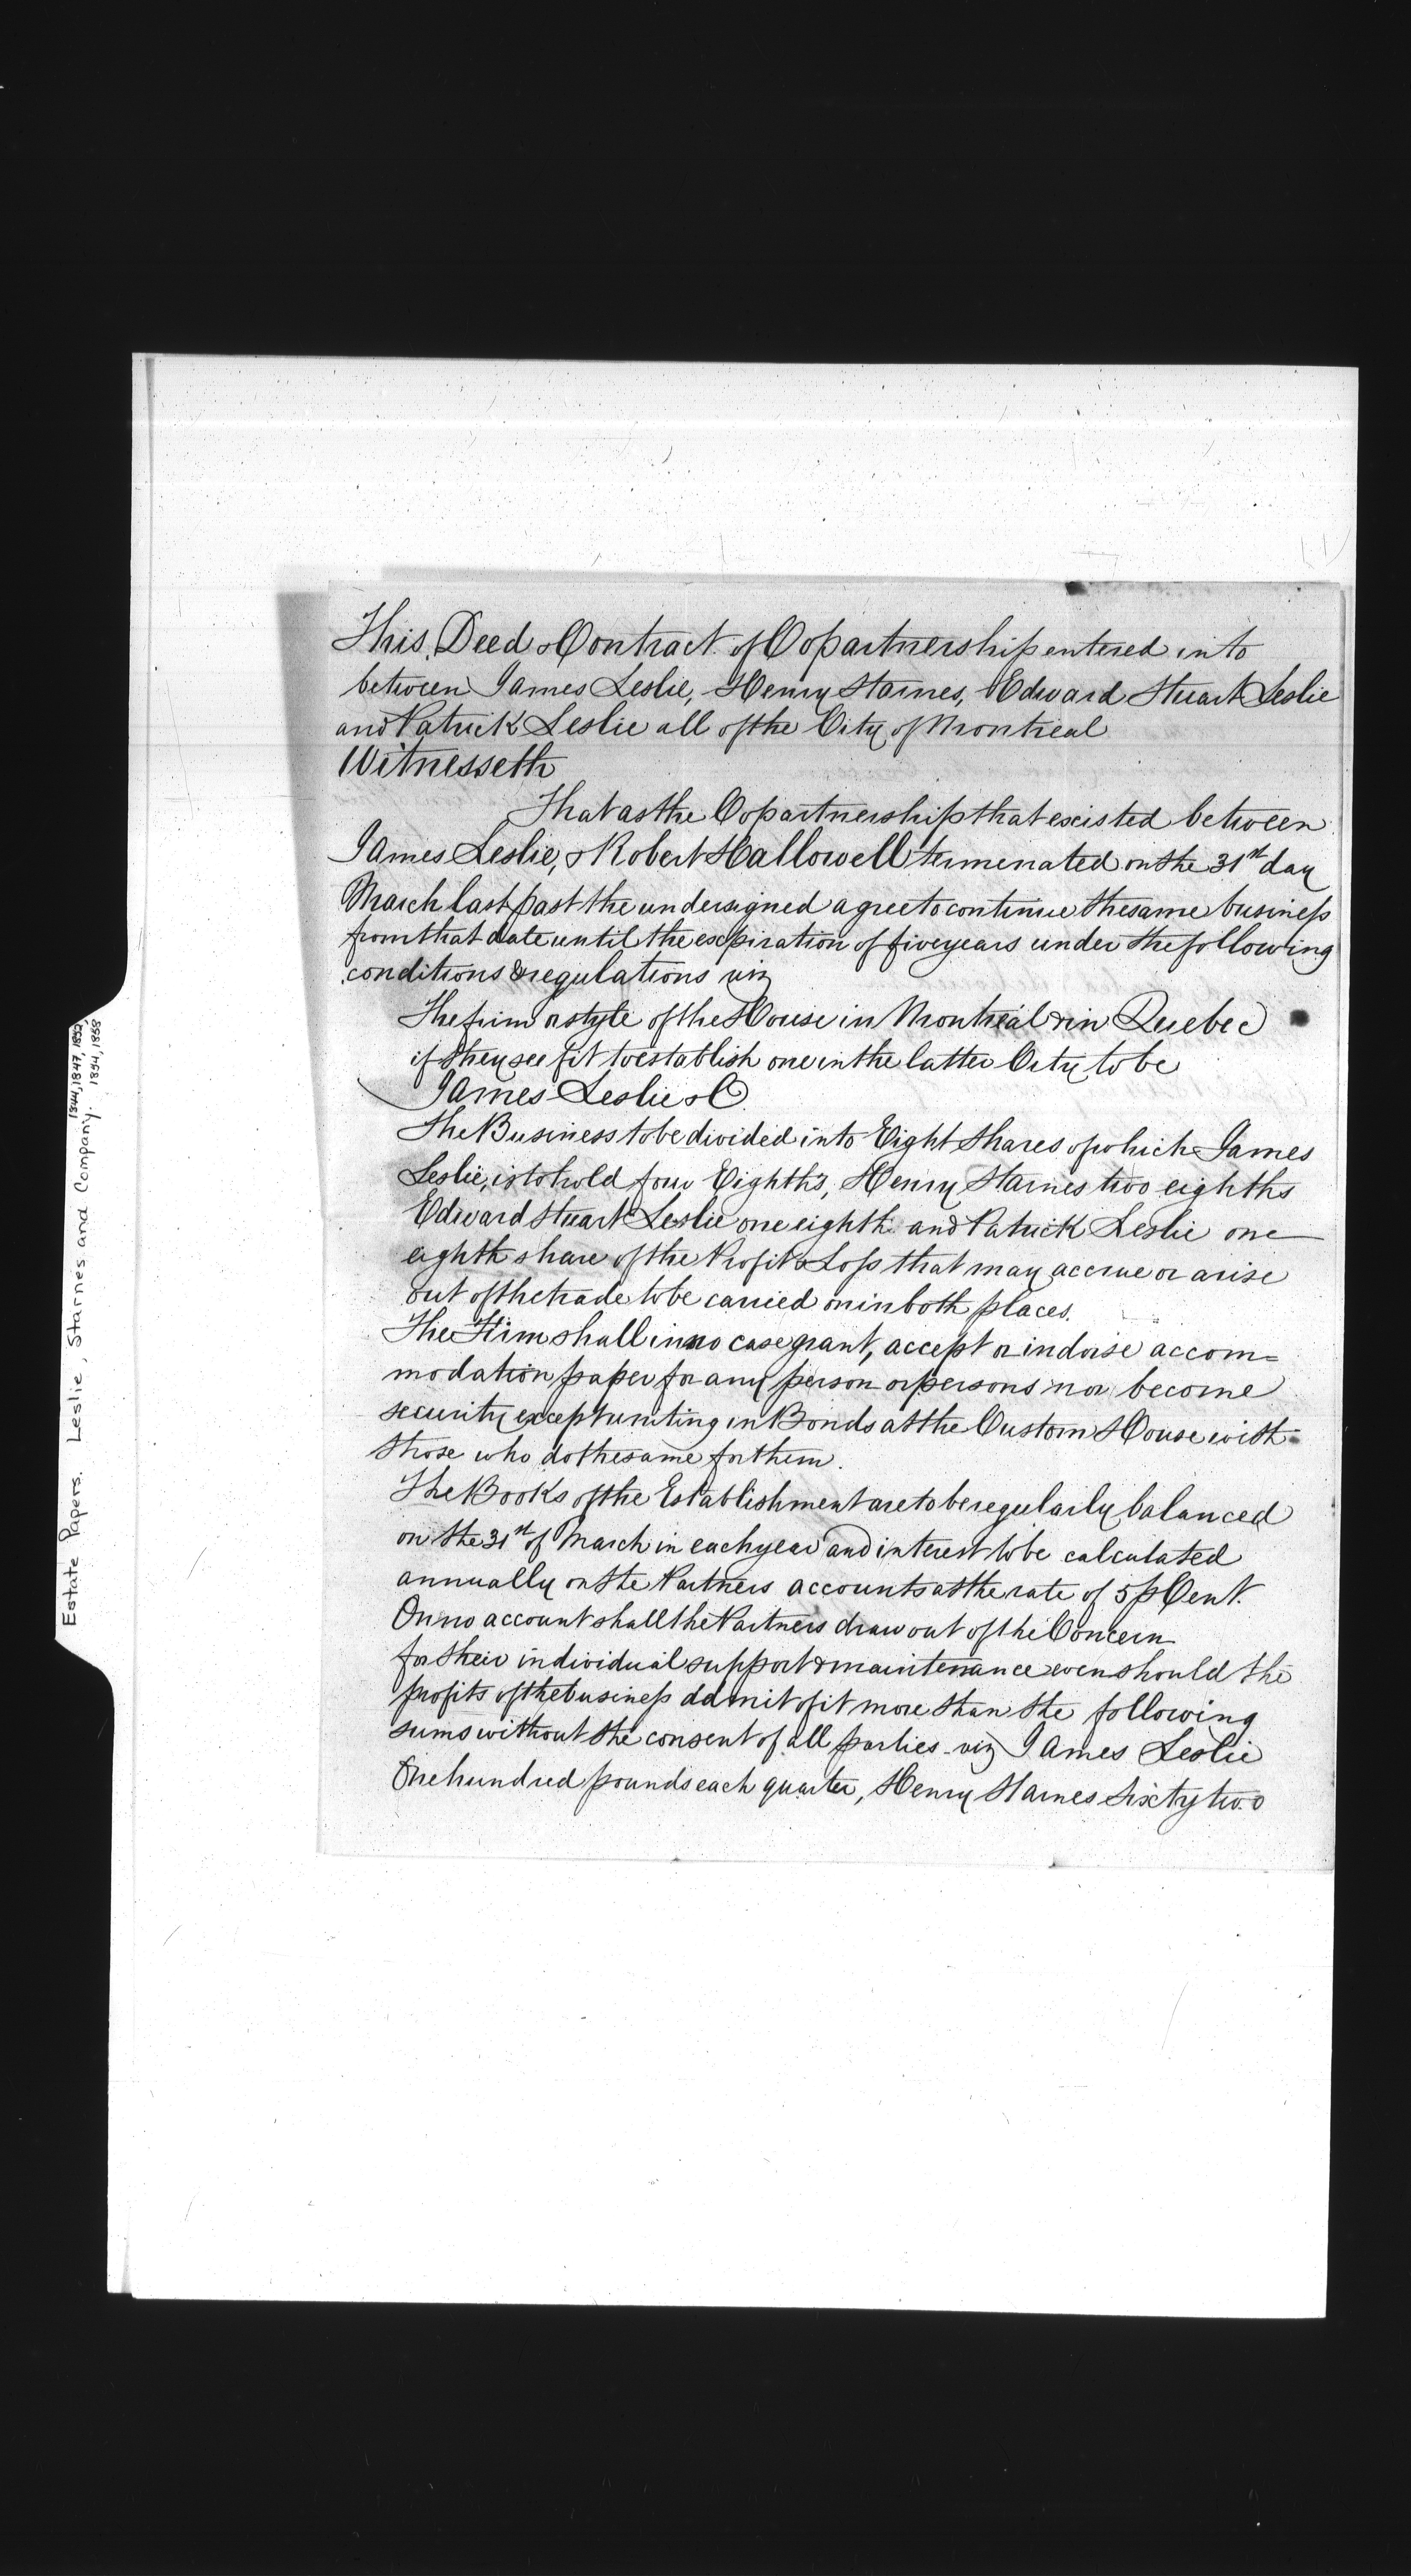 This Deed & Contract of Copartnership entered into
between James Leslie, Henry Starnes, Edward Stuart Leslie
and Patrick Leslie all of the City of Montreal
Witnesseth
That as the Copartnership that existed between
James Leslie, & Robert Hallowell terminated on the 31st day
March last past the undersigned agree to continue the same business
from that date until the expiration of five years under the following
conditions & regulations viz
The firm or style of the House in Montreal & in Quebec
if they see fit to establish one in the latter City to be
James Leslie & C
The Business to be divided into Eight shares of which James
Leslie, is to hold four Eighths, Henry Starnes two eighths
Edward Stuart Leslie one eighth and Patrick Leslie one
eighth share of the Profit & Loss that may accrue or arise
out of the trade to be carried on in both places.
The Firm shall in no case grant, accept or indorse accom=
modation paper for any person or persons nor become
security except uniting in Bonds at the Custom House with
those who do the same for them.
The Books of the Establishment are to be regularly balanced
on the 31st of March in each year and interest to be calculated
annually on the Partners accounts at the rate of 5 p Cent.
On no account shall the Partners draw out of the Concern
for their individual support & maintenance even should the
profits of the business admit of it more than the following
sums without the consent of all parties - viz James Leslie
One hundred pounds each quarter, Henry Starnes Sixty two
Estate Papers. Leslie, Starnes and Company. 1844, 1847, 1852,
1854, 1858